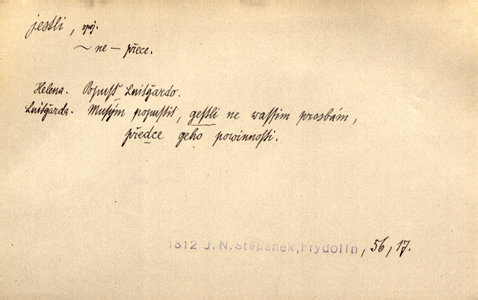 jestli, spj.
~ ne – přece.
Helena. Popusť Luitgardo.
Luitgarda. Musým popustit, gestli ne wassim prosbám,
předce geho powinnosti.
1812 J. N. Štěpánek, Frydolín, 56, 17.